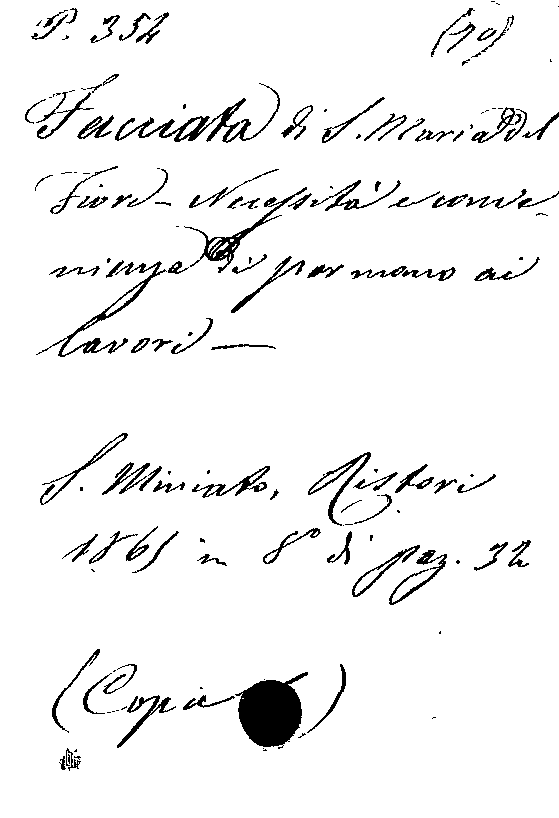 P. 352 (70)
Facciata di S. Maria del
Fiore - Necessità e conve-
nienza di por mano ai
lavori —
S. Miniato, Ristori
1861 in 8° di pag. 32
(Copia)